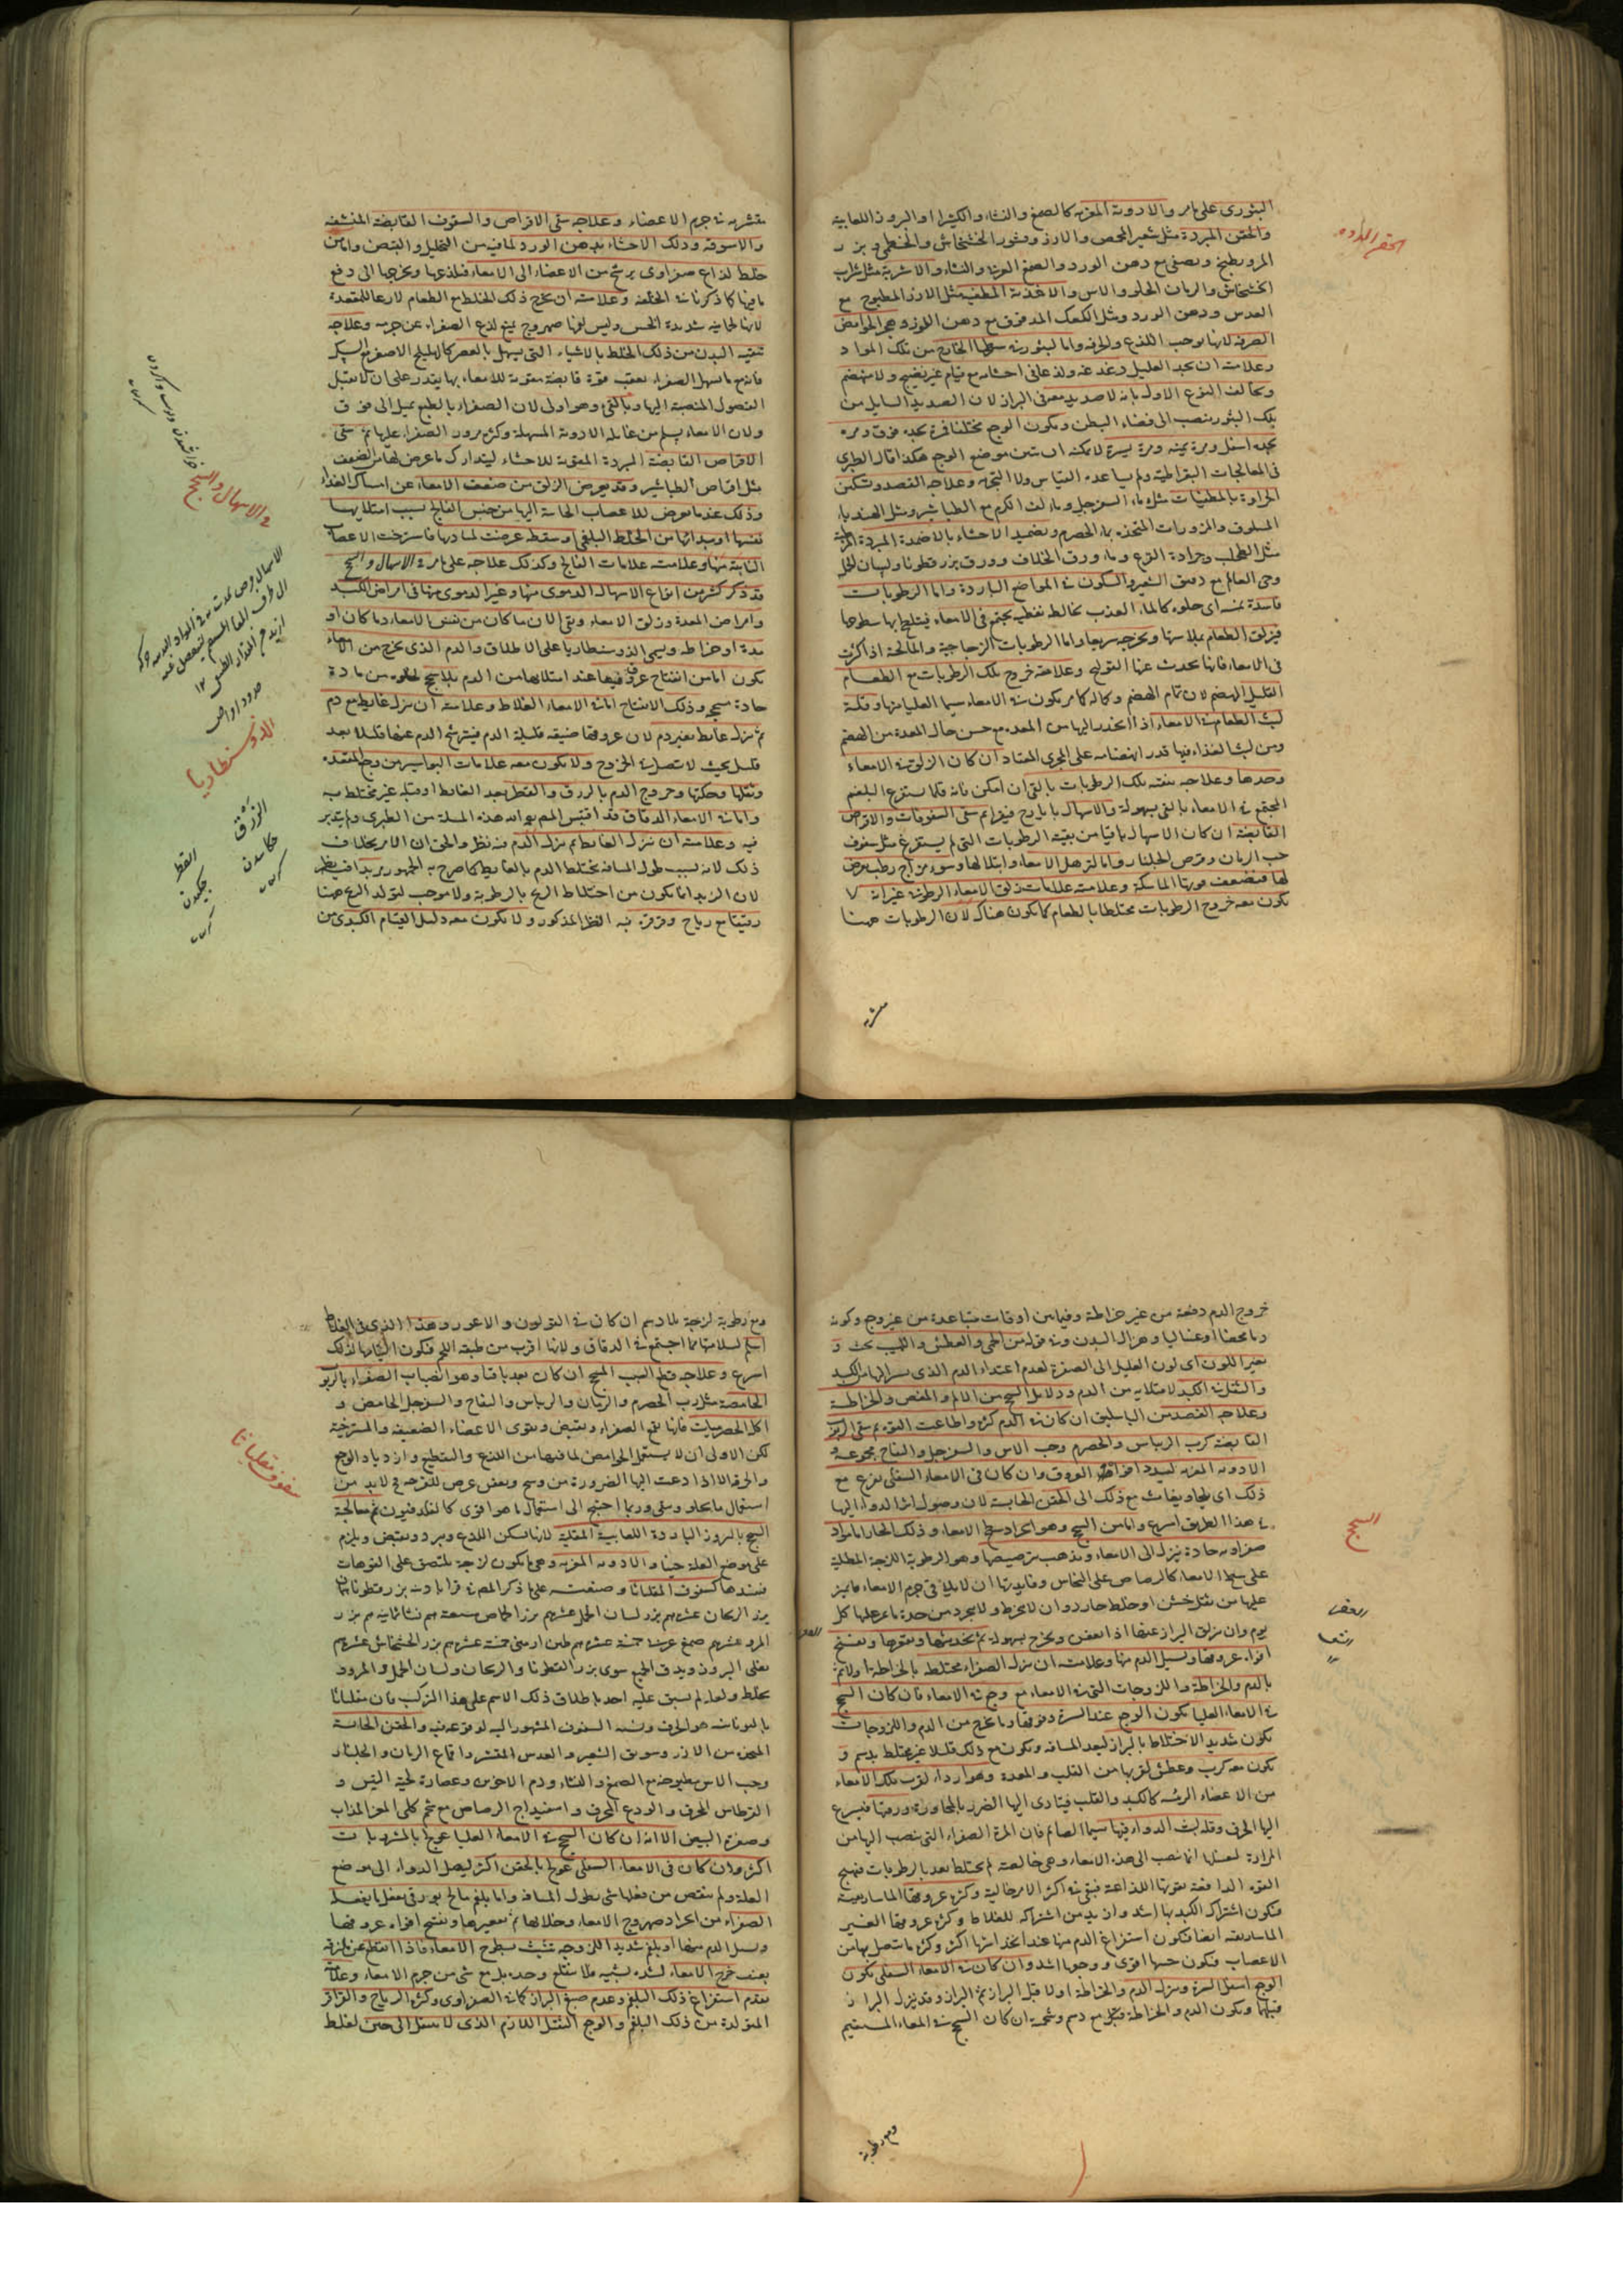 البثورى على مامر والادوية المغرية كالصمغ والنشاء والكثيراء او البزور اللعابية
والحقن المبردة مثل شعير المحمص والارز وقشور الخشخاش والخطمى وبزر
المرو يطبخ ويصفى مع دهن الورد والصمغ العربى والنشاء والاشربة مثل شراب
الخشخاش والرمان الحلو والاس والاغذية المطفية مثل الارز المطبوخ مع
العدس ودهن الورد ومثل الكعك المدقوق مع دهن اللوز وهجر الحوامض
الصرفة لانها توجب اللذع والحرقة واما لبثور
وعلامته ان يجد العليل ولذعا فى احشائه مع قيام غير نضيج ولا منهضم
ويخالف النوع الاول بانه لا صديد معه فى البراز لان الصديد السايل من
تلك البثور ينصب الى فضاء البطن ويكون الوجع مختلفا فمرة يجده فوق ومرة
يجده اسفل ومرة يمنة ومرة يسرة لا يمكنه ان يتبين موضع الوجع هكذا قال الطبرى
فى المعالجات البقراطية ولم يساعده القياس ولا التجربة وعلاجه الفصد وتسكين
الحرارة بالمطفيات مثل ماء السفرجل وماء لف الكرم مع الطباشير ومثل الهندباء
المسلوق والمزورات المتخذة بماء الحصرم وتضميد الاحشاء بالاضمدة المبردة
مثل الطحلب وجرادة القرع وماء ورق الخلاف وورق بزرقطونا ولسان الحمل
وحى العالم مع دقيق الشعير والسكون فى المواضع الباردة واما الرطوبات
فاسدة اى حلوة كالماء العذب يخالط تفطيه يجتمع فى الامعاء فيتبلغ بها سطوحها
فيزلق الطعام بملاستها ويخرجه سريعا واما الرطوبات الزجاجية والمالحة اذا كثرت
فى الامعاء فانها يحدث عنها القولنج وعلامته خروج تلك الرطوبات مع الطعام
القليل الهضم لان تمام الهضم وكماله كما مر يكون فى الامعاء سيما العليا منها وقلة
لبث الطعام فى الامعاء اذا انحدر اليها من المعدة مع حسن حال المعدة من الهضم
ومن لبث الغذاء فيها قدر انهضامه على المجرى المعتاد ان كان الزلق فى الامعاء
وحدها وعلاجه تنقية تلك الرطوبات بالقئ ان امكن فانه قلما يستفرغ البلغم
المجتمع فى الامعاء بالقئ بسهولة والاسهال بايارج فيقرا ثم سقى السفوفات والاقراص
القابضة ان كان الاسهال باقيا من بقية الرطوبات التى لم يستفرغ مثل سفوف
حب الرمان وقرص الجلنار واما لترهل الامعاء وابتلالها وسوء مزاج رطب يعرض
لها فيضعف قوتها الماسكة وعلامته علامات زلق الامعاء الرطوبة غير انه لا
يكون معه خروج الرطوبات مختلطا بالطعام كما يكون هناك لان الرطوبات ههنا
متشربة
متشربة فى جرم الاعضاء وعلاجه سقى الاقراص والسفوف القابضة المنشفة
والاسوقة ودلك الاحشاء بدهن الورد لما فيه من التحليل والقبض واما من
خلط لذاع صفراوى يرشح من الاعضاء الى الامعاء فيلذعها ويحوجها الى دفع
ما فيها كما ذكرنا فى الخلفة وعلامته ان يخرج ذلك الخلط مع الطعام لاذعا للمقعدة
لانها لحمانية شديدة الحس وليس لها صهروج يمنع لذع الصفراء عن جرمه وعلاجه
تنقية البدن من ذلك الخلط بالاشياء التى يسهل بالعصر كالهليلج الاصفر مع السكر
فانه مع ما يسهل الصفراء يعقب قوة قابضة مقوية للامعاء بها يقدر على ان لا يقبل
الفضول المنصبة اليها وبالقئ وهو اولى لان الصفراء بالطبع يميل الى فوق
ولان الامعاء يسلم من غائلة الادوية المسهلة وكثرة مرور الصفراء عليها ثم سقى
الاقراص القابضة المبردة المقوية للاحشاء ليتدارك ما عرض لها من الضعف
مثل اقراص الطباشير وقد يعرض الزلق من ضعف الامعاء عن امساك الغذاء
وذلك عندما يعرض للاعصاب الحاسة اليها من جنس الفالج بسبب امتلائها
نفسها او مبدائها من الخلط البلغمى او سقطة عرضت لمباديها فاسترخت الاعصاب
النابتة منها وعلامته علامات الفالج وكذلك علاجه على مامر فى الاسهال والسحج
قد ذكر كثير من انواع الاسهال الدموى منها وغير الدموى منها فى امراض الكبد
وامراض المعدة وزلق الامعاء وبقى الان ما كان من نفس الامعاء وما كان او
مدة او خراطة ويسمى الذوسنطاريا على الاطلاق والدم الذى يخرج من الامعاء
يكون اما من انفتاح عروق فيها عند امتلائها من الدم بلا سحج لخلوه من مادة
حادة مسحج وذلك الانفتاح اما فى الامعاء الغلاظ وعلامته ان ينزل غايط مع دم
ثم ينزل غايط بغير دم لان عروقها ضيقة قليلة الدم فيترشح الدم عنها قليلا بعد
قليل بحيث لا يتصل فى الخروج ولا يكون معه علامات البواسير من وجع المقعدة
وثقلها وحكتها وخروج الدم بالزرق والقطر بعد الغائط او قبله غير مختلط به
واما فى الامعاء الدقاق قد اقتبس المص هذه المسئلة من الطبرى ولم يتدبر
فيه وعلامته ان ينزل الغائط ثم ينزل الدم فيه نظر والحق ان الامر بخلاف
ذلك لانه بسبب طول المسافة يختلط الدم بالغايط كما صرح به الجمهور
لان الزبد انما يكون من اختلاط الريح بالرطوبة ولا موجب لتولد الريح ههنا
رقيقا مع رياح وقرقرة فيه النظر المذكور ولا يكون معه دليل القيام الكبدى من
فى الاسهال والسحج
الذوسنطاريا
الزرق
القطر
چكيدن
خروج الدم دفعة من غير خراطة وفيما بين اوقات متباعدة من غير وجع وكونه
دما محضا او غساليا وهزال البدن وفى قوله من الحمى والعطش واللهيب بحث و
تغير اللون اى لون العليل الى الصفرة لعدم اعتداء الدم الذى يسرى اليها من الكبد
والثقل فى الكبد لامتلائه من الدم ودلايل السحج من الالم والمغص والخراطة
وعلاجه الفصد من الباسليق ان كان فى الدم كثرة واطاعت القوة ثم سقى الربوب
القابضة كرب الريباس والحصرم وحب الاس والسفرجل والتفاح مجموعة و
الادوية المغرية ليسد افواه العروق وان كان فى الامعاء السفلى يفزع مع
ذلك اى يلجاء ويغاث مع ذلك الى الحقن الحابسة لان وصول اثر الدواء اليها
فى هذا الطريق اسرع واما من السحج وهو انجراد سطح الامعاء وذلك انجارا ما لمواد
صفراوية حادة ينزل الى الامعاء ويذهب بترصيصها وهو الرطوبة اللزجة المطلية
على سطح الامعاء كالرصاص على النحاس وفايدتها ان لا يلاقى جرم الامعاء ما يمر
عليها من ثفل خشن او خلط حار وان لا ينخرط ولا ينجرد من حدة ما يمر عليها كل
يوم وان يزلق البراز عنها اذا انعصر ويخرج بسهولة ثم يخدشها ويعقرها ويفتح
افواه عروقها ويسيل الدم منها وعلامته ان ينزل الصفراء مختلطة بالخراطة اولا ثم
بالدم والخراطة واللزوجات التى فى الامعاء مع وجع فى الامعاء فان كان السحج
فى الامعاء العليا يكون الوجع عند السرة وفوقها وما يخرج من الدم واللزوجات
يكون شديد الاختلاط بالبراز لبعد المسافة ويكون مع ذلك قليلا غير مختلط بدسم و
يكون معه كرب وعطش لقربها من القلب والمعدة وهو اردأ لقرب تلك الامعاء
من الاعضاء الرئيسة كالكبد والقلب فيتادى اليها الضرر بالمجاورة ورقتها فيسرع
اليها الخرق وقلة لبث الدواء فيها سيما الصائم فان المرة الصفراء التى ينصب اليها من
المرارة لغسلها انما تصب الى هذه الامعاء وهى خالصة لم يختلط بعد بالرطوبات فيهيج
القوة الدافعة بقوتها اللذاعة فيبقى فى اكثر الامر خالية وكثرة عروقها الماساريقية
فيكون اشتراك الكبد بها اشد وازيد من اشتراكه للغلاظ وكثرة عروقها الغير
الماساريقية ايضا فيكون استفراغ الدم منها عند انخراقها اكثر وكثرة ما يتصل بها من
الاعصاب فيكون حسها اقوى ووجعها اشد وان كان فى الامعاء السفلى يكون
الوجع اسفل السرة وينزل الدم والخراطة اولا قبل البراز ثم البراز وقد ينزل البراز
قبلها ويكون الدم والخراطة قبل مع دسم وشحمية ان كان السحج فى المعاء المستقيم
السحج
ومع رطوبة
ومع رطوبة لزجة بلا دسم ان كان فى القولون والاعور وهذا الذى فى الغلاظ
اسلم لسلامتها مما اجتمع فى الدقاق ولانها اقرب من طبيعة اللحم فيكون التيامها لذلك
اسرع وعلاجه قطع السبب المسحج ان كان بعد باقيا وهو انصباب الصفراء بالربوب
الحامضة مثل رب الحصرم والرمان والريباس والتفاح والسفرجل الحامض و
اكل الحصرميات فانها تقمع الصفراء ويقبض ويقوى الاعضاء الضعيفة والمسترخية
لكن الاولى ان لا يستعمل الحوامض لما فيها من اللذع والتقطيع وازدياد الوجع
والحرقة الا اذا دعت اليها الضرورة من وسخ وبعض عرض للقرحة فح لابد من
استعمال ما يجلو وينقى وربما احتيج الى استعمال ما هو اقوى كالفلدفيون ثم معالجة
السحج بالبزور الباردة اللعابية المقلية لانها يسكن اللذع ويبرد ويقبض ويلزم
على موضع العلة حينا والادوية المغرية وهى ما يكون لزجة يلتصق على الفوهات
فيسدها كسفوف المقلياثا وصنعته على ما ذكر المص فى قرابادينه بزر قطونا
بزر الريحان عشرة دراهم بزر لسان الحمل عشرة دراهم بزر الحماض سبعة دراهم نشا ثمانية دراهم بزر
المرو عشرة دراهم صمغ عربى خمسة عشر دراهم طين ارمنى خمسة عشر دراهم بزر الخشخاش عشرة دراهم
يقلى البزور ويدق الجميع سوى بزر القطونا والريحان ولسان الحمل والمرو و
يخلط ولعله لم يسبق عليه احد باطلاق ذلك الاسم على هذا التركيب فان مقلياثا
باليونانية هو الحرف ونسبة السفوف المشهور اليه لوقوعه فيه والحقن الحابسة
المتخذة من الارز وسويق الشعير والعدس المقشر واقماع الرمان والجلنار
وحب الاس مطبوخة مع الصمغ والنشاء ودم الاخوين وعصارة لحية التيس و
القرطاس المحرق والودع المحرق واسفيداج الرصاص مع شحم كلى المعز المذاب
وصفرة البيض الا انه ان كان السحج فى الامعاء العليا عولج بالمشروبات
اكثر وان كان فى الامعاء السفلى عولج بالحقن اكثر ليصل الدواء الى موضع
العلة ولم ينقص من فعلها شئ بطول المسافة واما بلغم مالح بورقى يفعل ما يفعله
الصفراء من انجراد صهروج الامعاء وجلائها ثم تعقيرها ويفتح افواه عروقها
ويسيل الدم منها او بلغم شديد اللزوجة يتشبث بسطوح الامعاء فاذا انقلع عن لزقه
بعنف جرح الامعاء لشدة تشبثه فلا ينقلع وحده بل مع شئ من جرم الامعاء وعلامته
تقدم استفراغ ذلك البلغم وعدم صبغ البراز كما فى الصفراوى وكثرة الرياح والقراقر
المتولدة من ذلك البلغم والوجع الثقيل اللازم الذى لا ينتقل الى حين لغلظ
سفوف مقلياثا